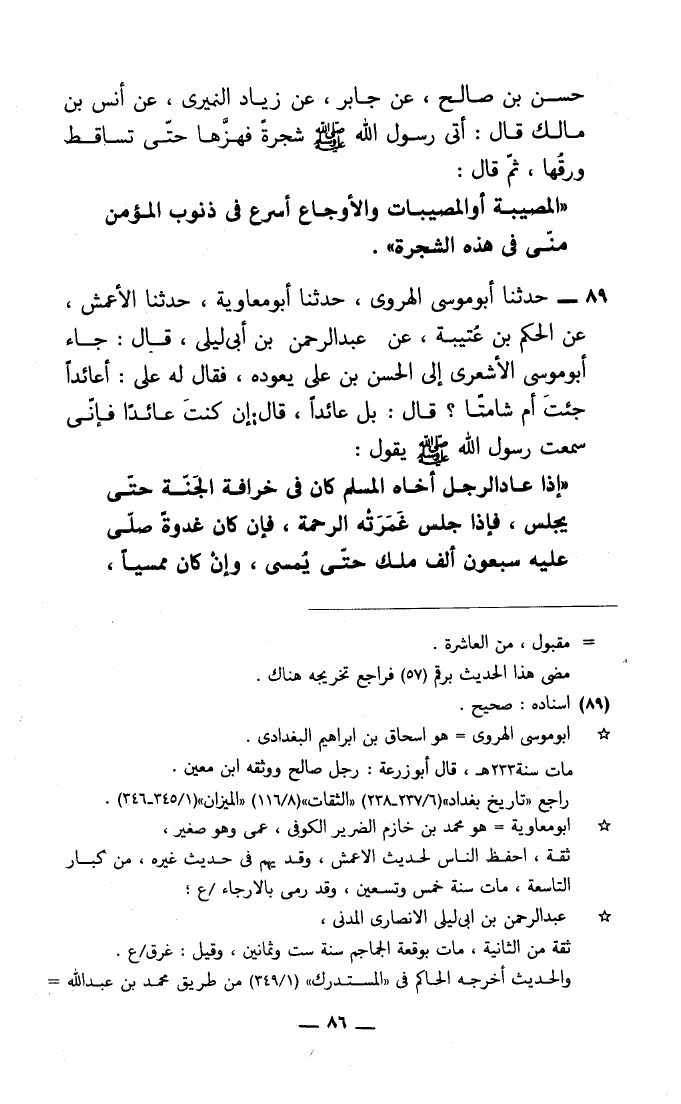 حسن بن صالح ، عن جابر ، عن زياد النميرى ، عن أنس بن
مالك قال : أتى رسول الله ﷺ شجرةً فهزَّها حتّى تساقط
ورقُها ، ثمّ قال :
«المصيبة أوالمصيبات والأوجاع أسرع فى ذنوب المؤمن
منّى فى هذه الشجرة» .
٨٩ — حدثنا أبوموسى الهروى ، حدثنا أبومعاوية ، حدثنا الأعمش ،
عن الحكم بن عُتيبة ، عن عبدالرحمن بن أبىليلى ، قال : جاء
أبوموسى الأشعرى إلى الحسن بن على يعوده ، فقال له على : أعائداً
جئتَ أم شامتًا ؟ قال : بل عائداً ، قال:إن كنتَ عائدًا فإنّى
سمعت رسول الله ﷺ يقول :
«إذا عادالرجل أخاه المسلم كان فى خرافة الجَنّة حتّى
يجلس ، فإذا جلس غَمَرَتْه الرحمة ، فإن كان غدوةً صلّى
عليه سبعون ألف ملك حتّى يُمسى ، وإنْ كان ممسياً ،
= مقبول ، من العاشرة .
مضى هذا الحديث برقم (٥٧) فراجع تخريجه هناك .
(٨٩) اسناده : صحيح .
☆ ابوموسى الهروى = هو اسحاق بن ابراهيم البغدادى .
مات سنة٢٣٣هـ ، قال أبوزرعة : رجل صالح ووثقه ابن معين .
راجع «تاريخ بغداد»(٢٣٧/٦-٢٣٨) «الثقات»(١١٦/٨) «الميزان»(٣٤٥/١-٣٤٦) .
☆ ابومعاوية = هو محمد بن خازم الضرير الكوفى ، عمى وهو صغير ،
ثقة ، احفظ الناس لحديث الاعمش ، وقد يهم فى حديث غيره ، من كبار
التاسعة ، مات سنة خمس وتسعين ، وقد رمى بالارجاء /ع ؛
☆ عبدالرحمن بن ابىليلى الانصارى المدنى ،
ثقة من الثانية ، مات بوقعة الجماجم سنة ست وثمانين ، وقيل : غرق/ع .
والحديث أخرجه الحاكم فى «المستدرك» (٣٤٩/١) من طريق محمد بن عبدالله =
— ٨٦ —